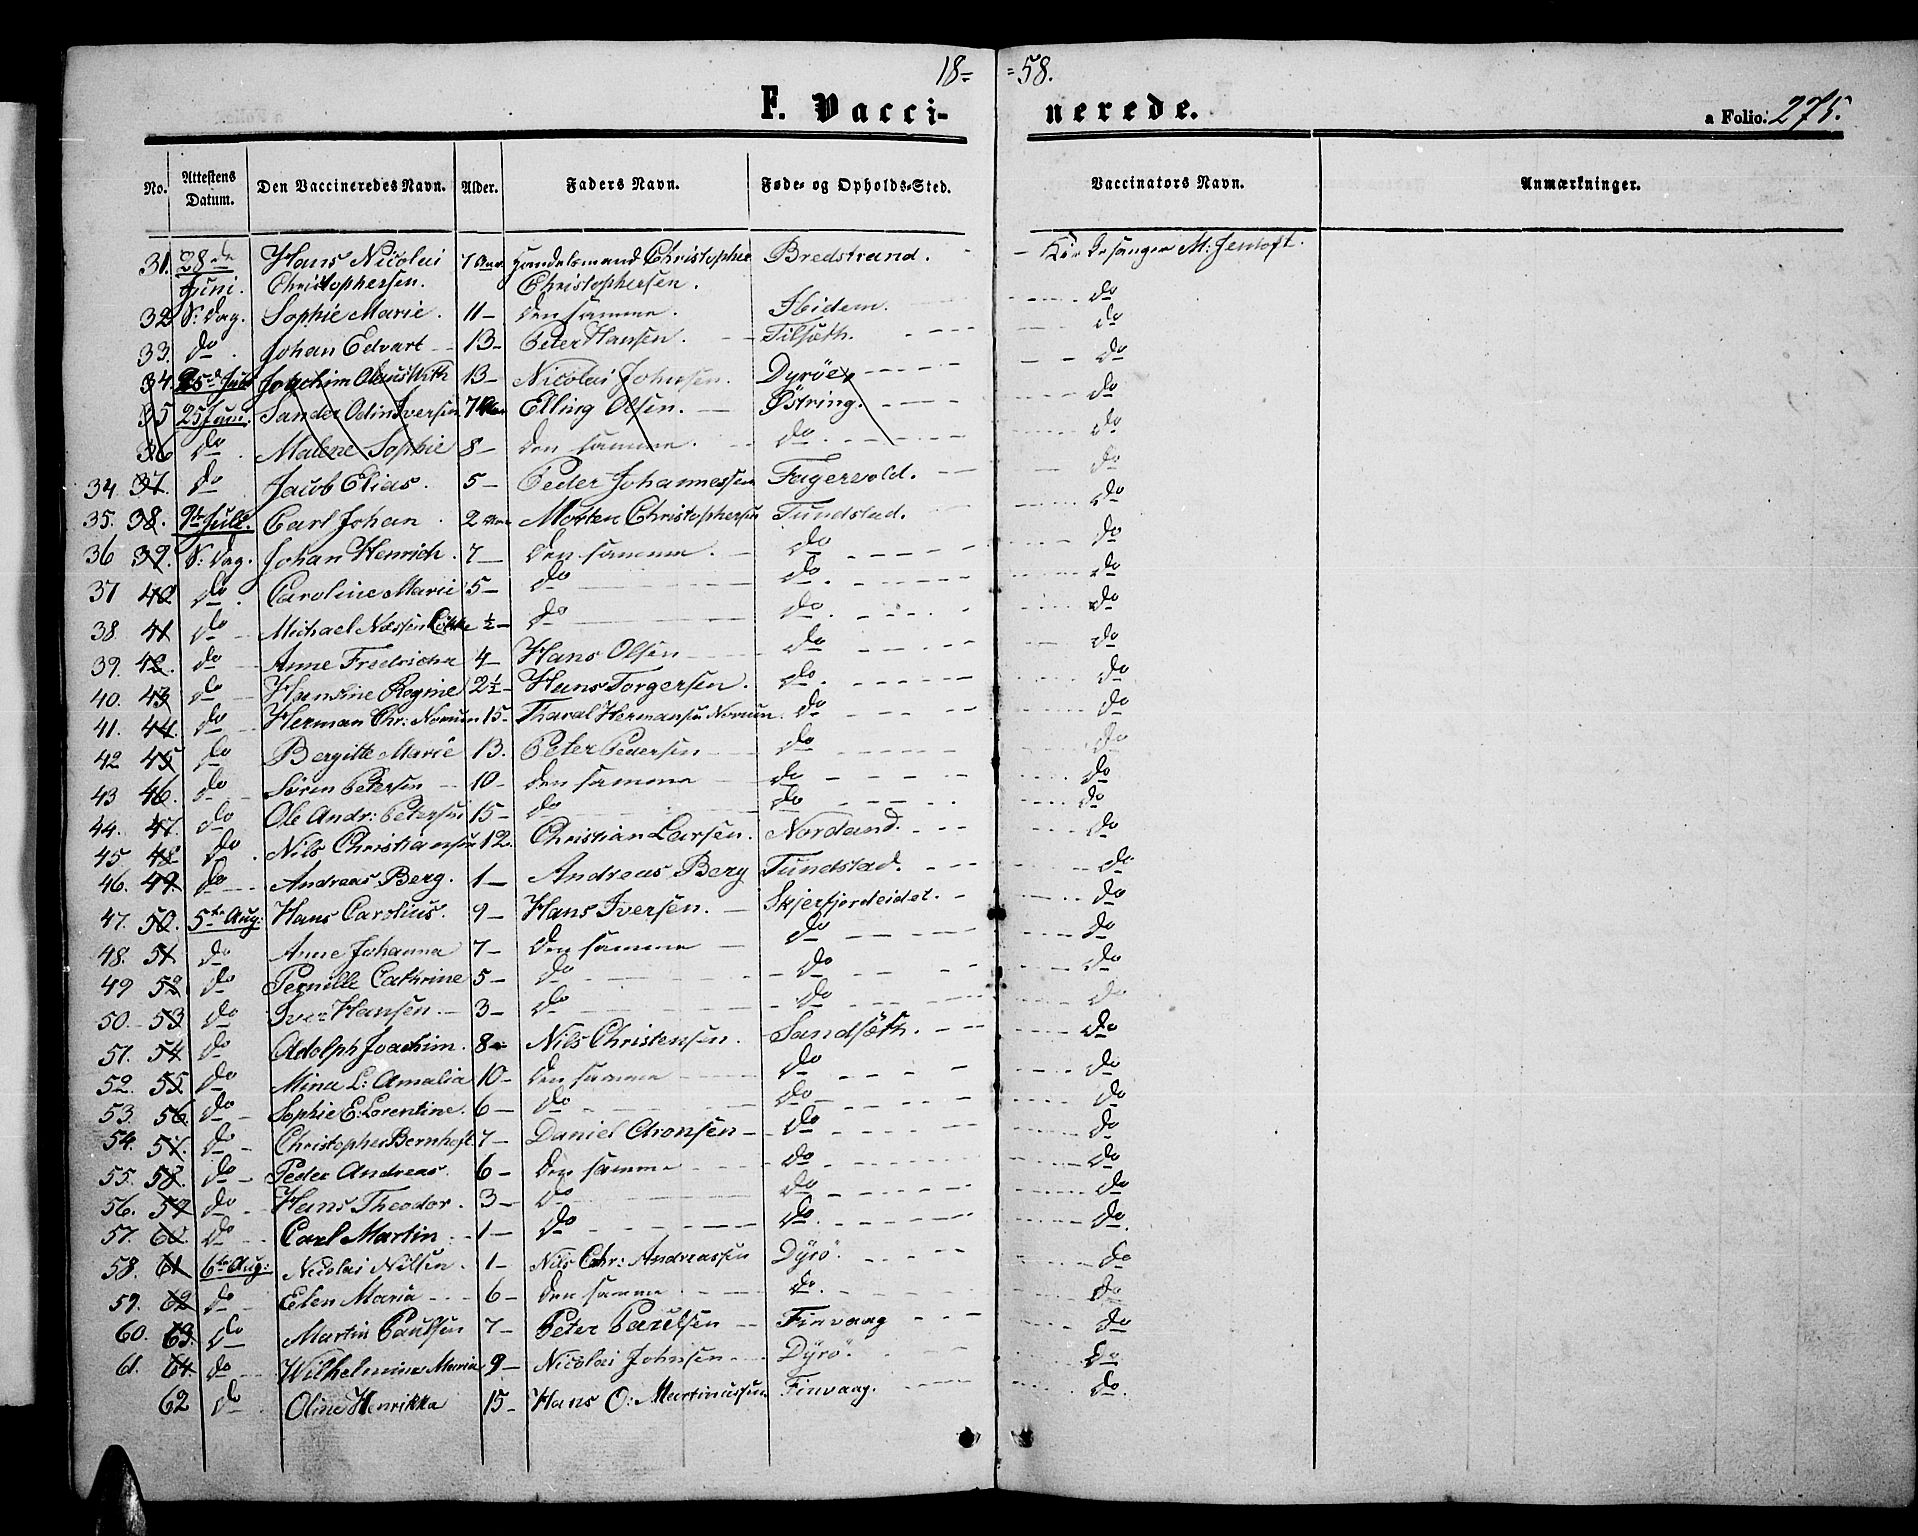 18 = = 58.
F. Vacci- nerede. a Folio: 275.
No. Attestens Datum. Den Vaccineredes Navn. Alder. Faders Navn. Føde- og Opholds-Sted. Vaccinators Navn. Anmærkninger.
31. 28de Hans Nicolai 7 Aar Handelsmand Christopher Bredstrand. - Kirkesanger M: Jentoft.
Juni. Christophersen. Christophersen.
32 S: Dag. Sophie Marie. 11- den samme. Ibidem. do
33. do. Johan Edvart 13- Peter Hansen. Tilsæth. do
34. 25de Juli Joachim Olaus With 13- Nicolai Johnsen. Dyrøe, do
35 25 Juni. Sander Odin Iversen 7 Aar Elling Olsen. Østring. do
36 do. Malene Sophie 8- den samme. do. do
34. 37. do Jacob Elias. 5- Peder Johannessen Fagervold. do
35. 38. 9de Juli. Carl Johan. 2 Aar Morten Christophersen Tundstad. do
36 39. S: Dag. Johan Henrich. 7- den samme. do do
37 40 do. Caroline Marie 5- do do. do
38. 41 do Michael Næssen ½- do do. do
39. 42. do Anne Fredricha 4- Hans Olsen do do
40. 43 do Hansine Regine 2½- Hans Torgersen. do. do
41. 44. do Herman Chr: Norum 15- Tharal Hermansen Norum. do do
42 45 do Bergitte Marie 13. Peter Pedersen do do
43 46. do Søren Petersen 10- den samme do do
44. 47. do Ole Andr: Petersen 15- do do do
45 48 do. Nils Christiansen 12. Christian Larsen. Nordland. do
46. 49 do Andreas Berg. 1- Andreas Berg Tundstad. do
47. 50. 5te Aug: Hans Carolius. 9- Hans Iversen. Skjerfjordeidet. do
48. 51 do Anne Johanna 7- den samme do do
49 52 do Pernille Cathrine 5- do do do
50. 53 do Iver Hansen. 3- do do do
51. 54 do Adolph Joachim. 8- Nils Christensen. Sandsæth. do
52. 55 do Mina L: Amalia 10- den samme do do
53. 56. do Sophie E: Lorentine. 6- do do do
54. 57. do Christopher Bernhoft 7- Daniel Aronsen do do
55. 58. do Peder Andreas. 6- den samme do do
56. 59 do Hans Theodor. 3- do do do
57. 60 do Carl Martin 1- do do. do.
58. 61 6te Aug: Nicolai Nilsen. 1- Nils Chr: Andreassen Dyrø. do
59. 62 do Elen Maria 6- den samme do. do
60. 63. do Martin Paulsen 7- Peter Paulsen Finvaag do
61. 64. do Wilhelmine Maria 9- Nicolai Johnsen Dyrø. do
62 do Oline Henrikka 15- Hans O: Martinussen Finvaag. do.